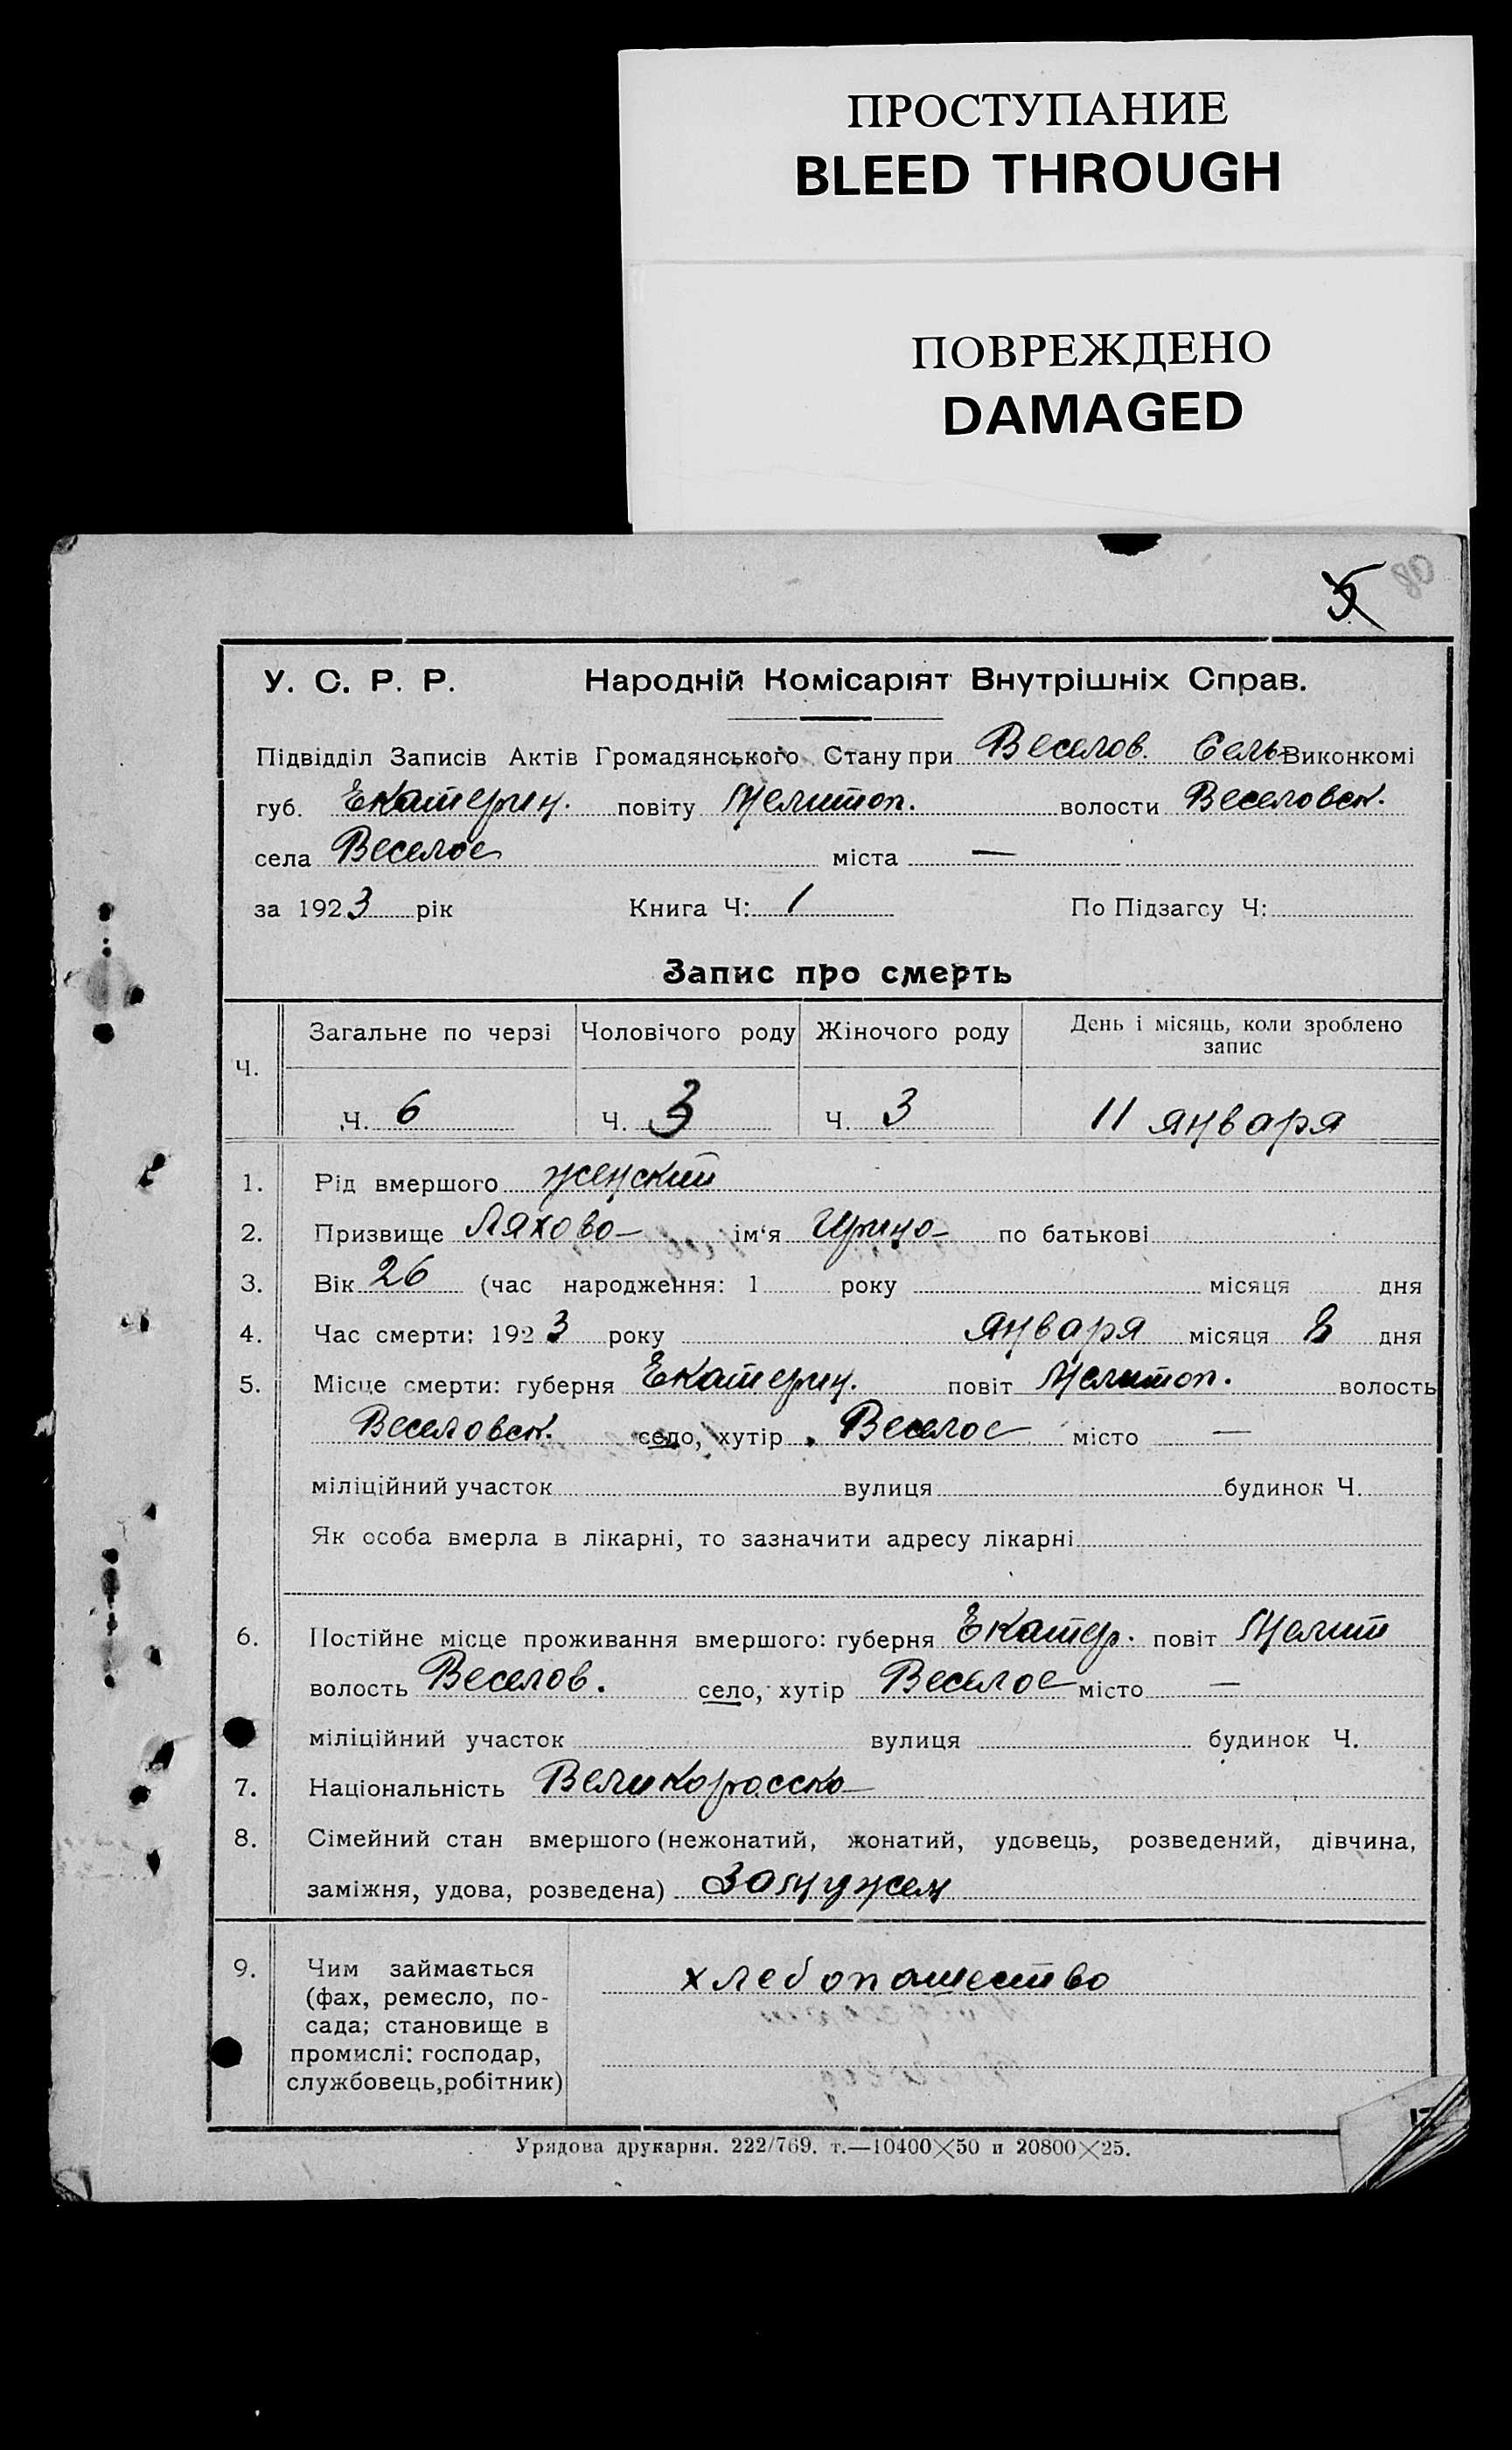 ПРОСТУПАНИЕ
BLEED THROUGH
ПОВРЕЖДЕНО
DAMAGED
5
У. С. Р. Р. Народній Комісаріят Внутрішніх Справ.
Підвідділ Записів Актів Громадянського Стану при Веселов. Сель-Виконкомі
губ. Екатерин. повіту Мелитоп. волости Веселовск.
села Веселое міста —
за 1923 рік Книга Ч: 1 По Підзагсу Ч:
Запис про смерть
Ч. Загальне по черзі Чоловічого роду Жіночого роду День і місяць, коли зроблено
запис
Ч. 6 Ч. 3 Ч. 3 11 января
1. Рід вмершого женский
2. Призвище Ляхова імʻя Ирина по батькові
3. Вік 26 (час народження: 1 року місяця дня
4. Час смерти: 1923 року января місяця 8 дня
5. Місце смерти: губерня Екатерин. повіт Мелитоп. волость
Веселовск. село, хутір Веселое місто —
міліційний участок вулиця будинок Ч.
Як особа вмерла в лікарні, то зазначити адресу лікарні
6. Постійне місце проживання вмершого: губерня Екатер. повіт Мелит
волость Веселов. село, хутір Веселое місто —
міліційний участок вулиця будинок Ч.
7. Національність Великоросска
8. Сімейний стан вмершого (нежонатий, жонатий, удовець, розведений, дівчина,
заміжня, удова, розведена) Замужем
9. Чим займається хлебопашество
(фах, ремесло, по-
сада; становище в
промислі: господар,
службовець, робітник)
Урядова друкарня. 222/769. т.—10400×50 и 20800×25.